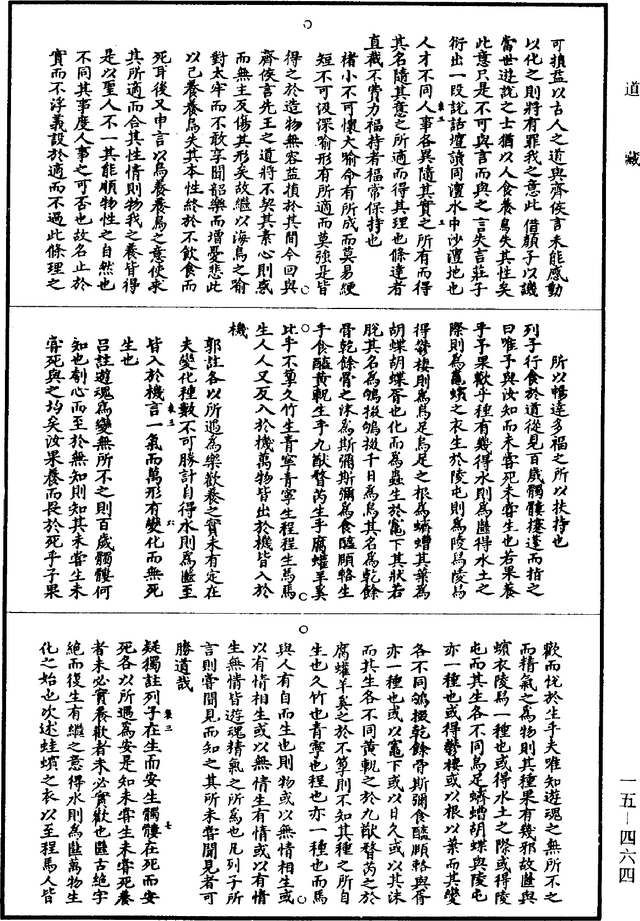 道藏
可損益以古人之道與齊侯言未能感動
以化之則將有罪我之意此借顏子以譏
當世遊說之士猶以人食養鳥失其性矣
此意只是不可與言而與之言失言莊子
衍出一段說話壇讀同澶水中沙澶地也
人才不同人事各異隨其實之所有而得
其名隨其意之所適而得其理也條達者
直截不費力福持者福常保持也
褚小不可懷大喻命有所成而莫易綆
短不可汲深喻形有所適而莫強是皆
得之於造物無容益損於其間今回與
齊侯言先王之道將不契其素心則惑
而無主反傷其形矣故繼以海鳥之喻
對太牢而不敢享聞韶樂而增憂悲此
以己養養鳥失其本性終於不飲食而
死耳後又申言以鳥養養鳥之意使求
其所適而合其性情則物我之養皆得
是以聖人不一其能順物性之自然也
不同其事度人事之可否也故名止於
實而不浮義設於適而不過此條理之
所以暢達多福之所以扶持也
列子行食於道從見百歲髑髏攓蓬而指之
曰唯予與汝知而未嘗死未嘗生也若果養
乎予果歡乎種有幾得水則為㡭得水土之
際則為䵷蠙之衣生於陵屯則為陵舄陵舄
得鬱棲則為烏足烏足之根為蠐螬其葉為
胡蝶胡蝶胥也化而為蟲生於竈下其狀若
脫其名為鴝掇鴝掇千日為鳥其名為乾餘
骨乾餘骨之沫為斯彌斯彌為食醯頤輅生
乎食醯黃軦生乎九猷瞀芮生乎腐蠸羊奚
比乎不箰久竹生青寧青寧生程程生馬馬
生人人又反入於機萬物皆出於機皆入於
機
郭註各以所遇為樂歡養之實未有定在
夫變化種數不可勝計自得水則為㡭至
皆入於機言一氣而萬形有變化而無死
生也
呂註遊魂為變無所不之則百歲髑髏何
知也刳心而至於無知則知其未嘗生未
嘗死與之均矣汝果養而長於死乎予果
歡而悅於生乎夫唯知遊魂之無所不之
而精氣之為物則其種果有幾邪故㡭與
蠙衣陵舄一種也或得水土之際或得陵
屯而其生各不同烏足蠐螬胡蝶與陵屯
亦一種也或得鬱棲或以根以葉而其變
各不同鴝掇乾餘骨斯彌食醯頤輅與胥
亦一種也或以竈下或以日久或以其沫
而其生各不同黃軦之於九猷瞀芮之於
腐蠸羊奚之於不箰則不知其種之所自
生也久竹也青寧也程也亦一種也而馬
與人有自而生也則物或以無情相生或
以有情相生或以無情生有情或以有情
生無情皆遊魂精氣之所為也凡列子所
言則嘗聞見而知之其所未嘗聞見者可
勝道哉
疑獨註列子在生而安生髑髏在死而安
死各以所遇為安是知未嘗生未嘗死養
者未必實養歡者未必實歡也㡭古絕字
絕而復生有繼之意得水則為㡭萬物生
化之始也次述蛙蠙之衣以至程馬人皆
一五—四六四